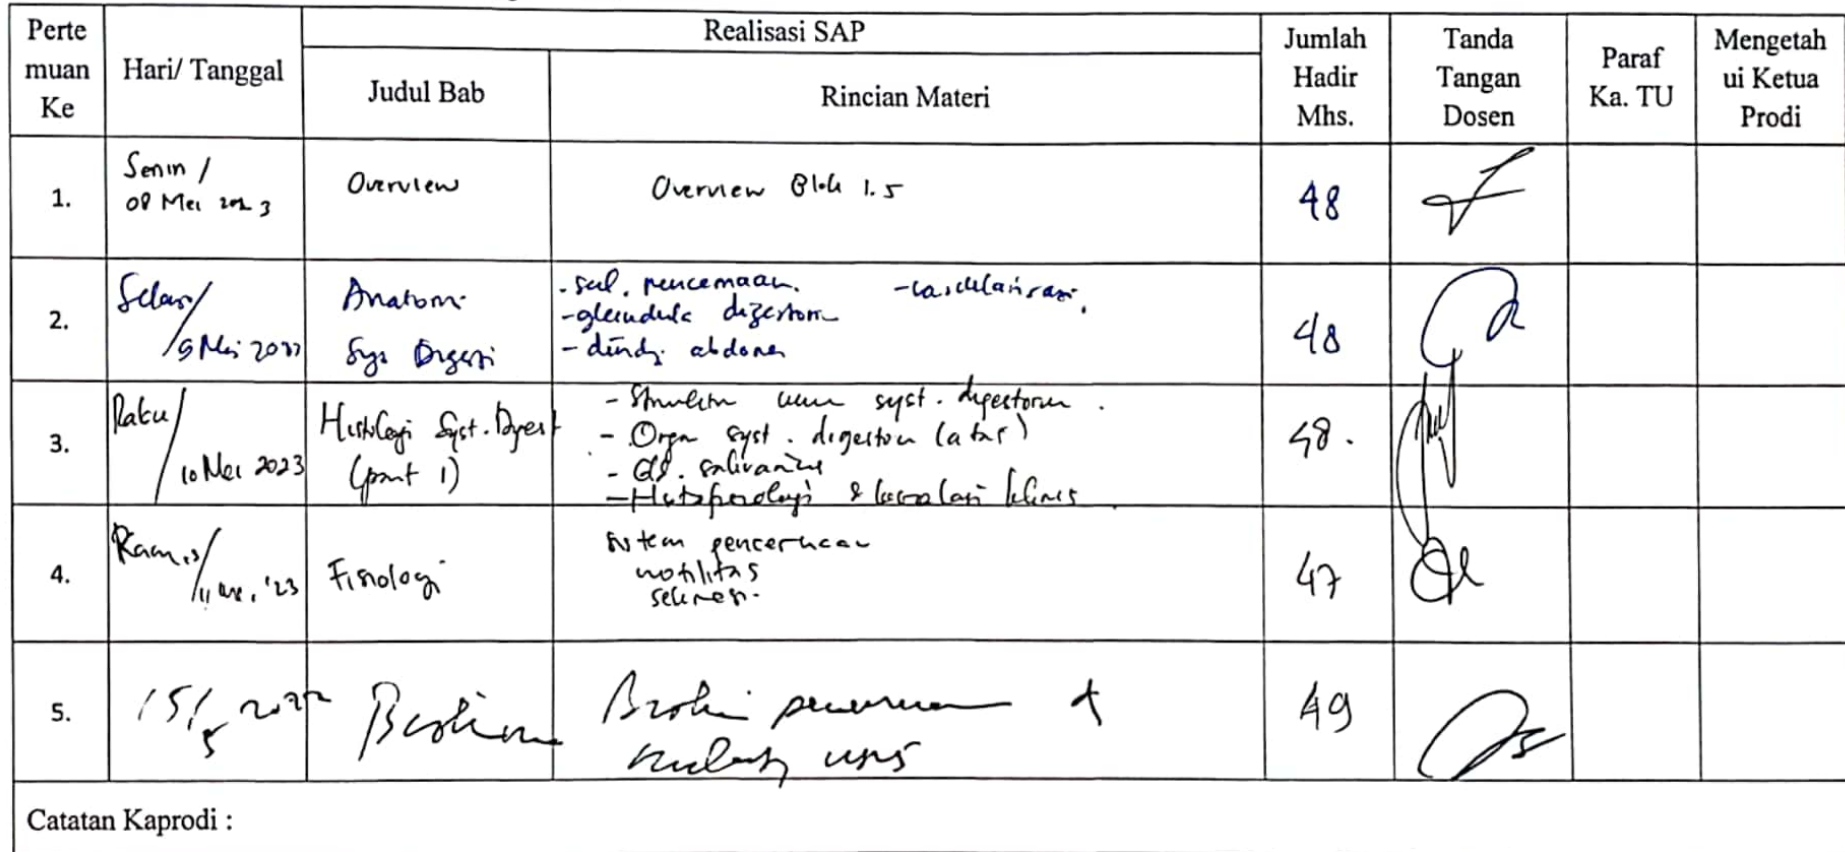 Perte
muan
Ke
Hari/ Tanggal
Realisasi SAP
Judul Bab
Rincian Materi
Jumlah
Hadir
Mhs.
Tanda
Tangan
Dosen
Paraf
Ka. TU
Mengetah
ui Ketua
Prodi
1.
Senin /
08 Mei 2023
Overview
Overview Blok 1.5
48
2.
Selasa/
9 Mei
Anatomi
Sys Digesti
- sal. pencernaan
- vaskularisasi.
- glandula digestoria
- dinding abdomen
48
3.
Rabu/
10 Mei 2023
Histologi Syst. Digest
(part 1)
- Struktur umum syst. digestorium.
- Organ syst. digestori (atas)
- Gl. salivarius
- Histofisiologi & korelasi klinis
48.
4.
Kamis/
11 '23
Fisiologi
sistem pencernaan
motilitas
sekresi.
47
5.
15/5
Biokim
49
Catatan Kaprodi :